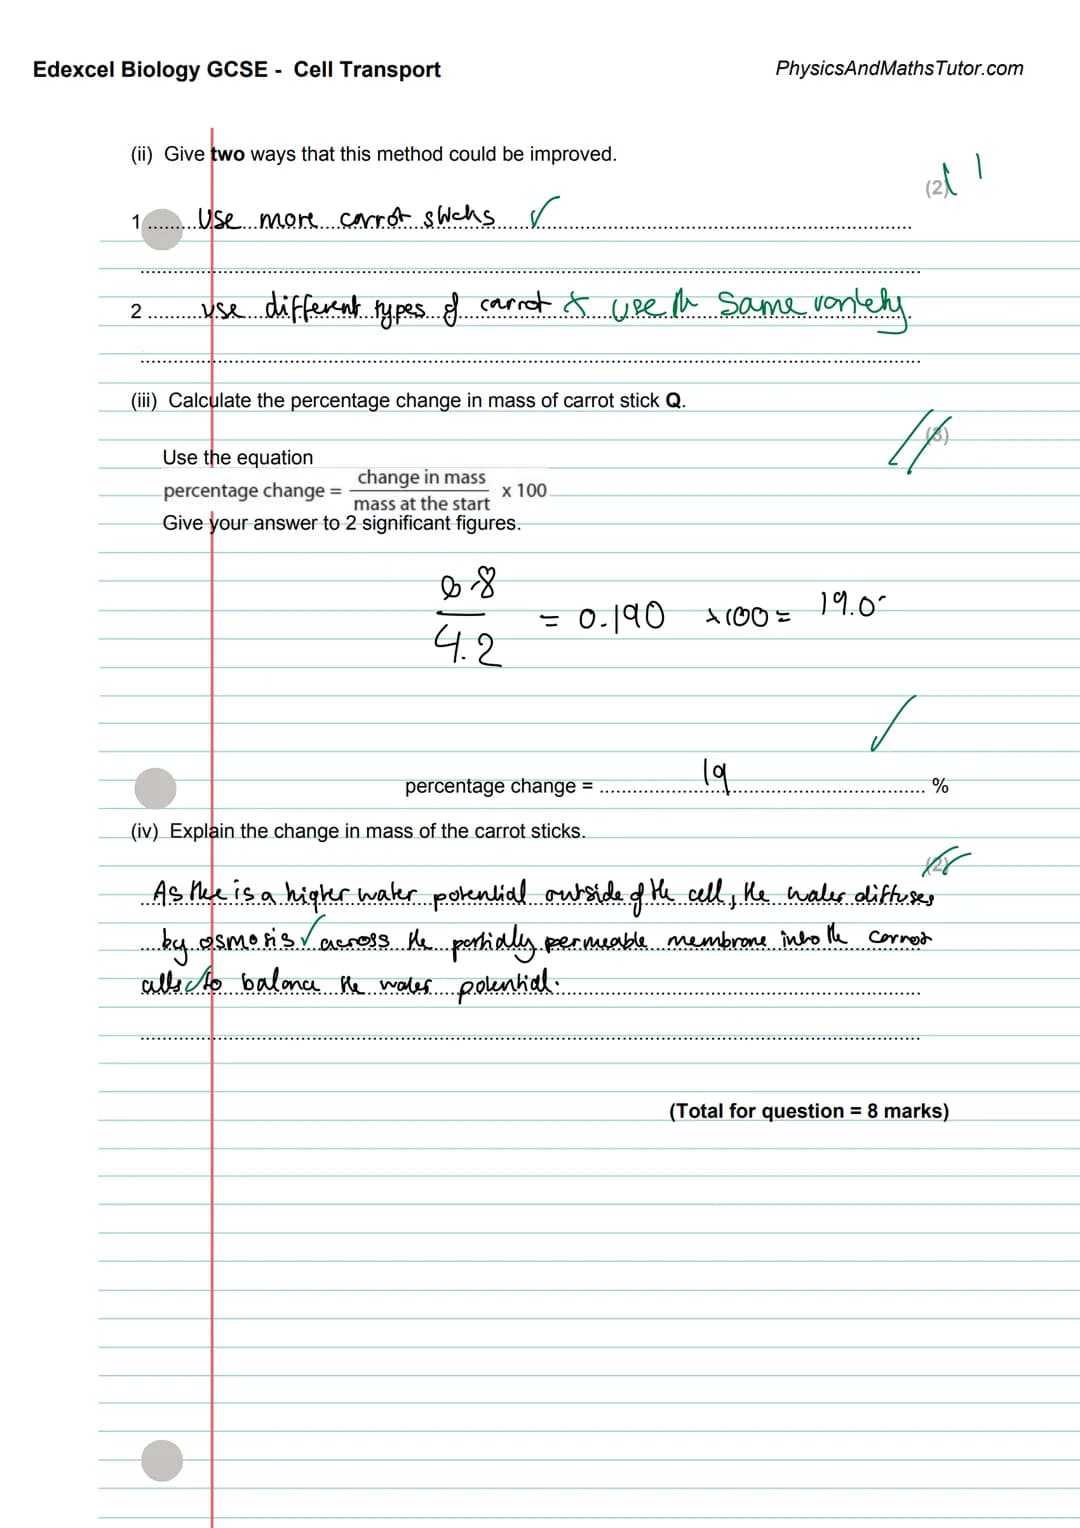 Edexcel Biology GCSE - Cell Transport
PhysicsAndMathsTutor.com
(ii) Give two ways that this method could be improved.
(2) 1
1 Use more carrot sticks ✓
2 use different types of carrot x use the same variety.
(iii) Calculate the percentage change in mass of carrot stick Q.
(3)
Use the equation
percentage change = change in mass / mass at the start x 100
Give your answer to 2 significant figures.
0.8 / 4.2 = 0.190 x100 = 19.0
✓
percentage change = 19 %
(iv) Explain the change in mass of the carrot sticks.
(2)
As there is a higher water potential outside of the cell, the water diffuses
by osmosis ✓ across the partially permeable membrane into the carrot
cells ✓ to balance the water potential.
(Total for question = 8 marks)